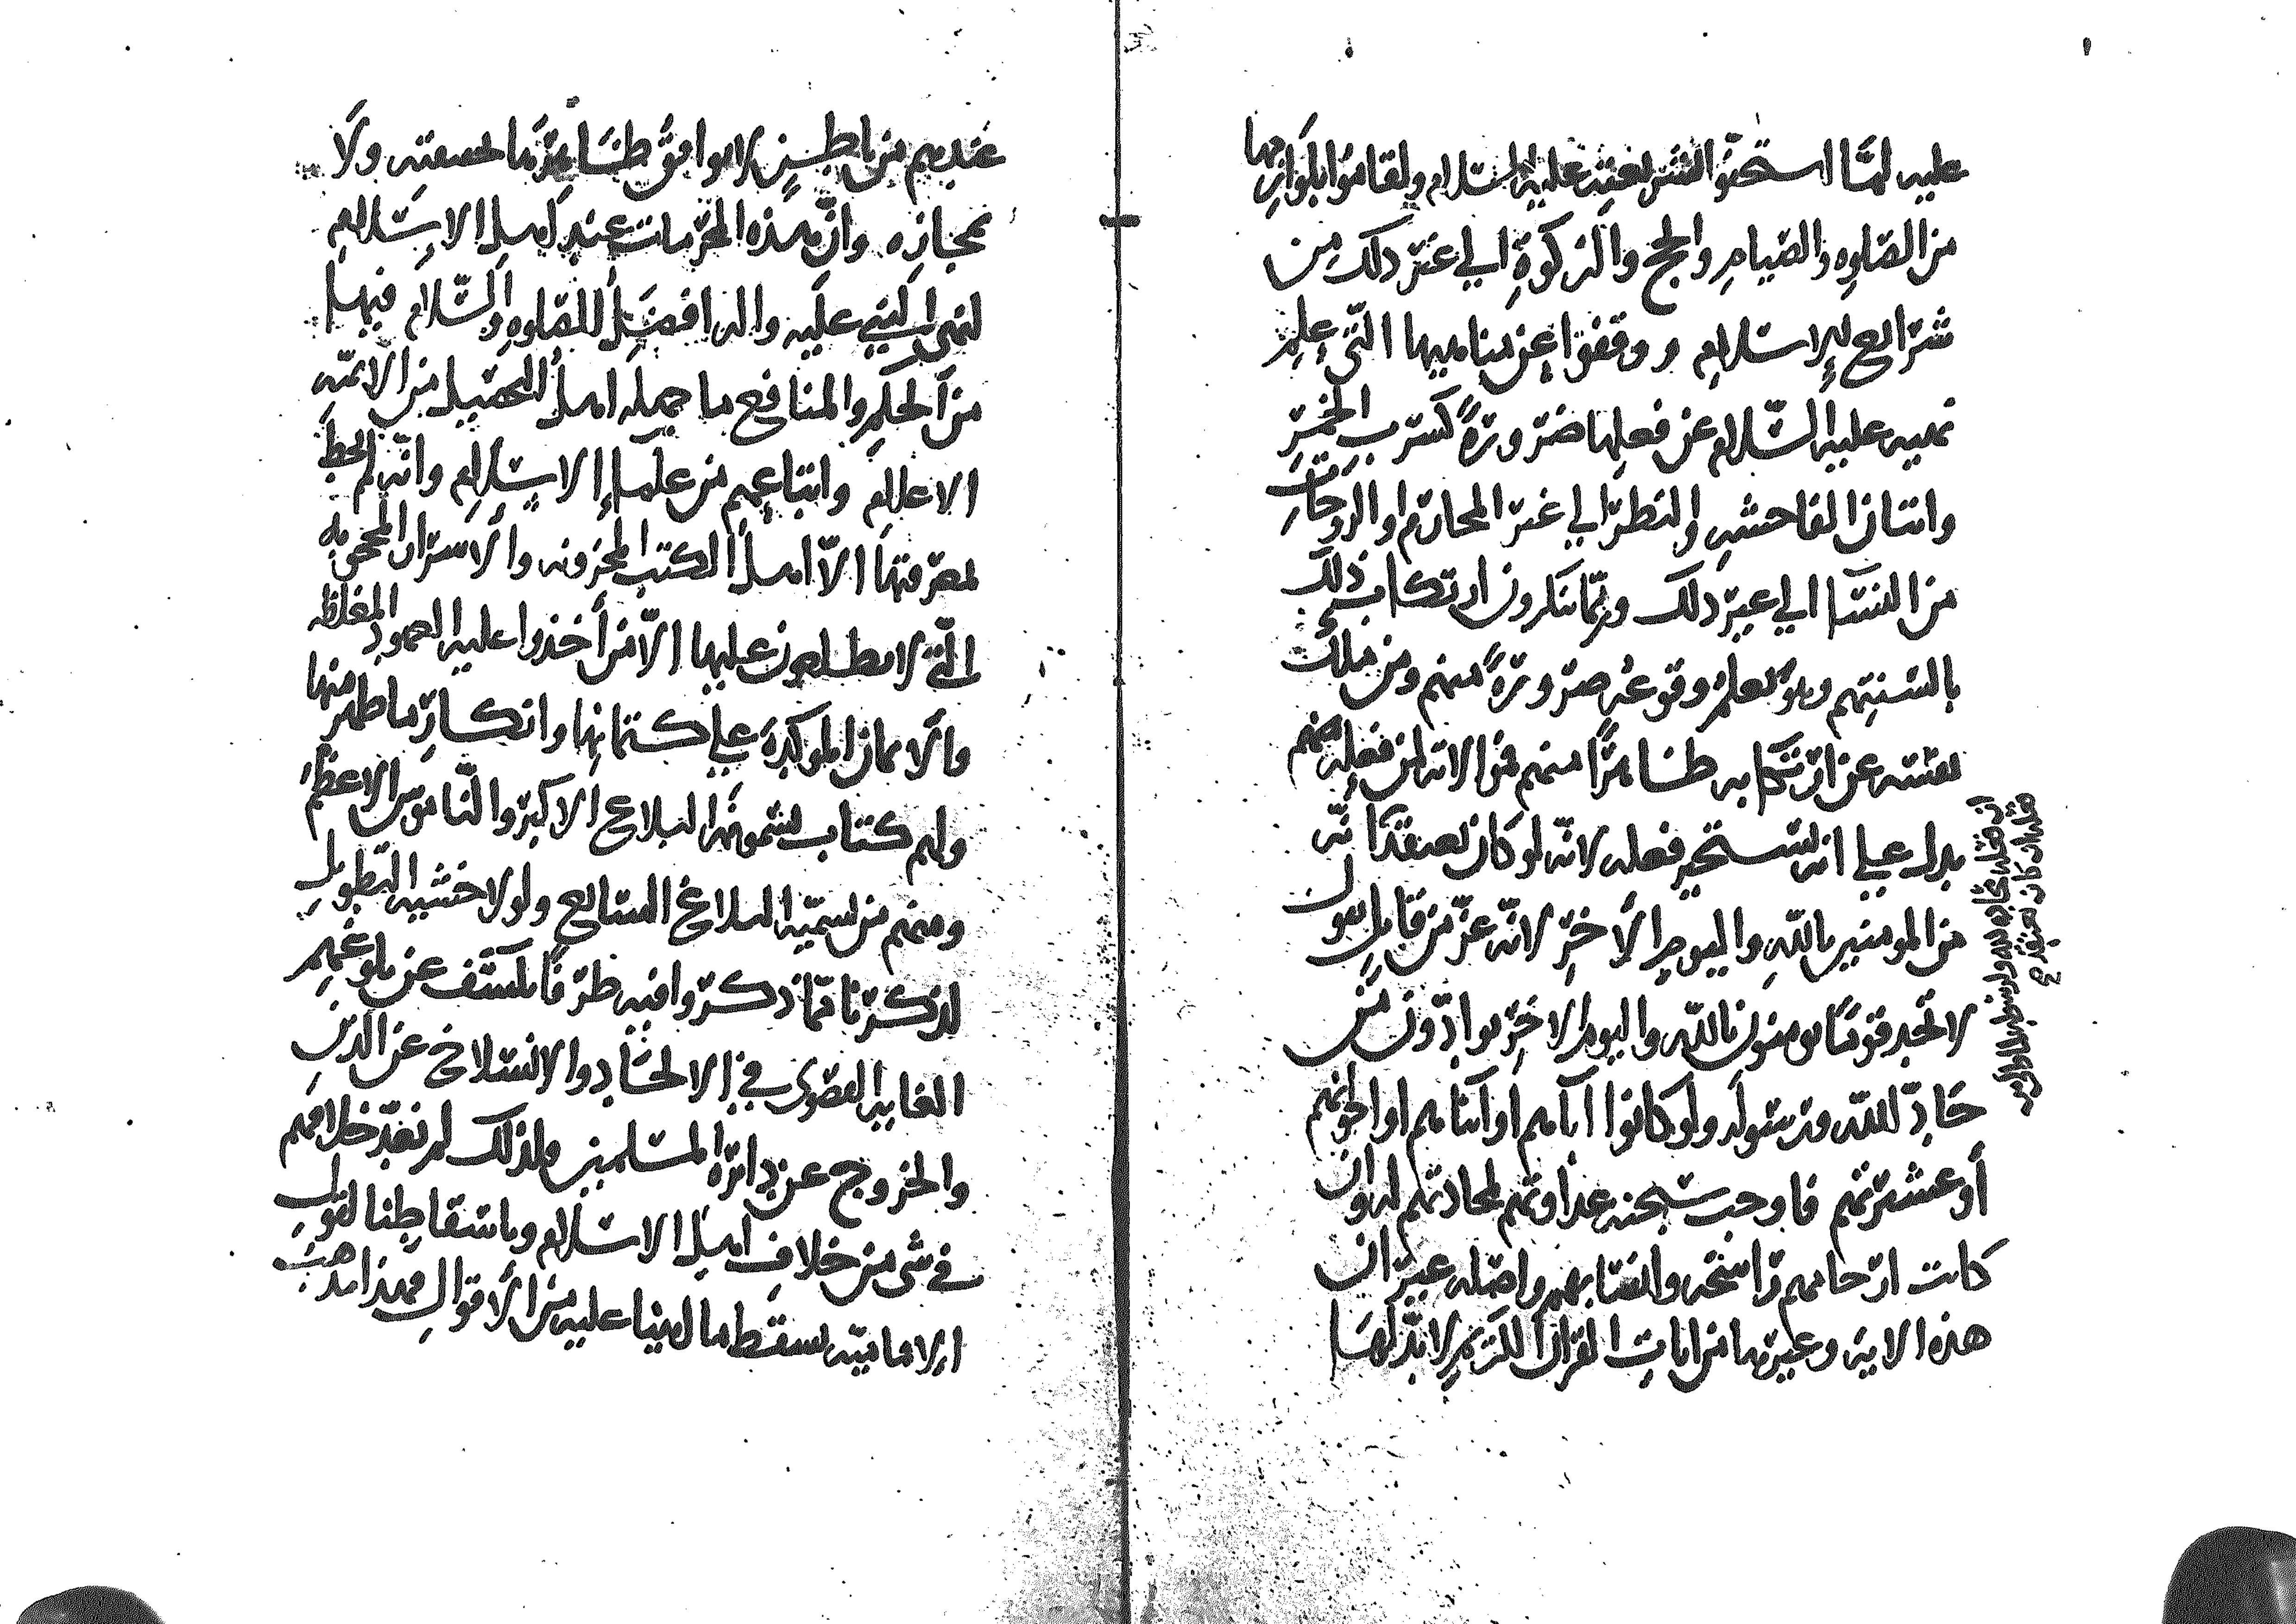 عليه لما استحنوا لشريعته عليه السلام ولقاموا بلوازمها
من الصلوه والصيام والحج والزكوة الي غير ذلك من
شرايع الاسلام ووقفوا عن مناهيها التي علم
نهيه عليه السلام عن فعلها ضرورة كشرب الخمر
واتيان الفاحشه والنظر الي غير المحارم او الزوجات
من النسآ الي غير ذلك وربما ينكرون ارتكاب ذلك
بالسنتهم وهو يعلم وقوعه ضرورة منهم ومن ملك
نفسه عن ارتكابه ظاهرا منهم فموالاته لمن فعله منهم
يدل علي انه يستخير فعله لانه لو كان يعتقد انه
من المومنين بالله واليوم الاخر لانه عز من قايل يقول
لا تجد قوما يومنون بالله واليوم الاخر يوادون من
حاد الله ورسوله ولو كانوا اباهم او ابناهم او اخوانهم
أو عشيرتهم فاوجب سبحنه عداوتهم لمحادتهم له وان
كانت ارحامهم راسخه وانسابهم واصله غير ان
هذه الاية وغيرها من ايات القران الكريم لا بد لها
ان فعله محاده لله ولرسوله
فعله لو كان يعتقد صح
عندهم من باطن لا يوافق ظاهرها لحقيقته ولا
مجازه وان هذه المحرمات عند اهل الاسلام
لنهي النبي عليه واله افضل الصلوه والسلام فيها
من الحكم والمنافع ما جهله اهل التحصيل من الائمه
الاعلام واتباعهم من علمآ الاسلام وانه لم يحط
بمعرفتها الا اهل الكتب المخزونه والاسرار
التي لا يطلعون عليها الا من أخذوا عليه العهود المغلظه
والايمان الموكدة علي كتمانها وانكار ما ظهر منها
ولهم كتاب يسمونه البلاغ الاكبر والناموس الاعظم
ومنهم من يسميه البلاغ السابع ولولا خشيه التطويل
لذكرنا مما ذكروا فيه طرفا يكشف عن بلوغهم
الغايه القصوى في الالحاد والانسلاخ عن الدين
والخروج عن دائرة المسلمين ولذلك لم نعد خلافهم
في شى من خلاف اهل الاسلام وباسقاطنا لقول
الاماميه يسقط ما لدينا عليه من الاقوال فهذا مذهب